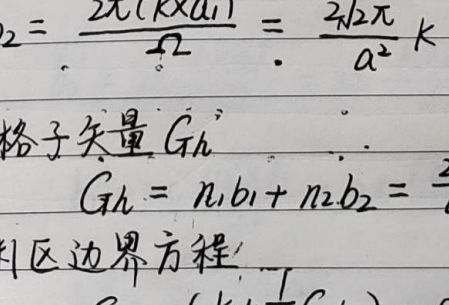 ₂ = 2π(k×a₁) / Ω = 2√2π / a² k
格子矢量 Gh
Gh = n₁b₁ + n₂b₂ = 2
区边界方程